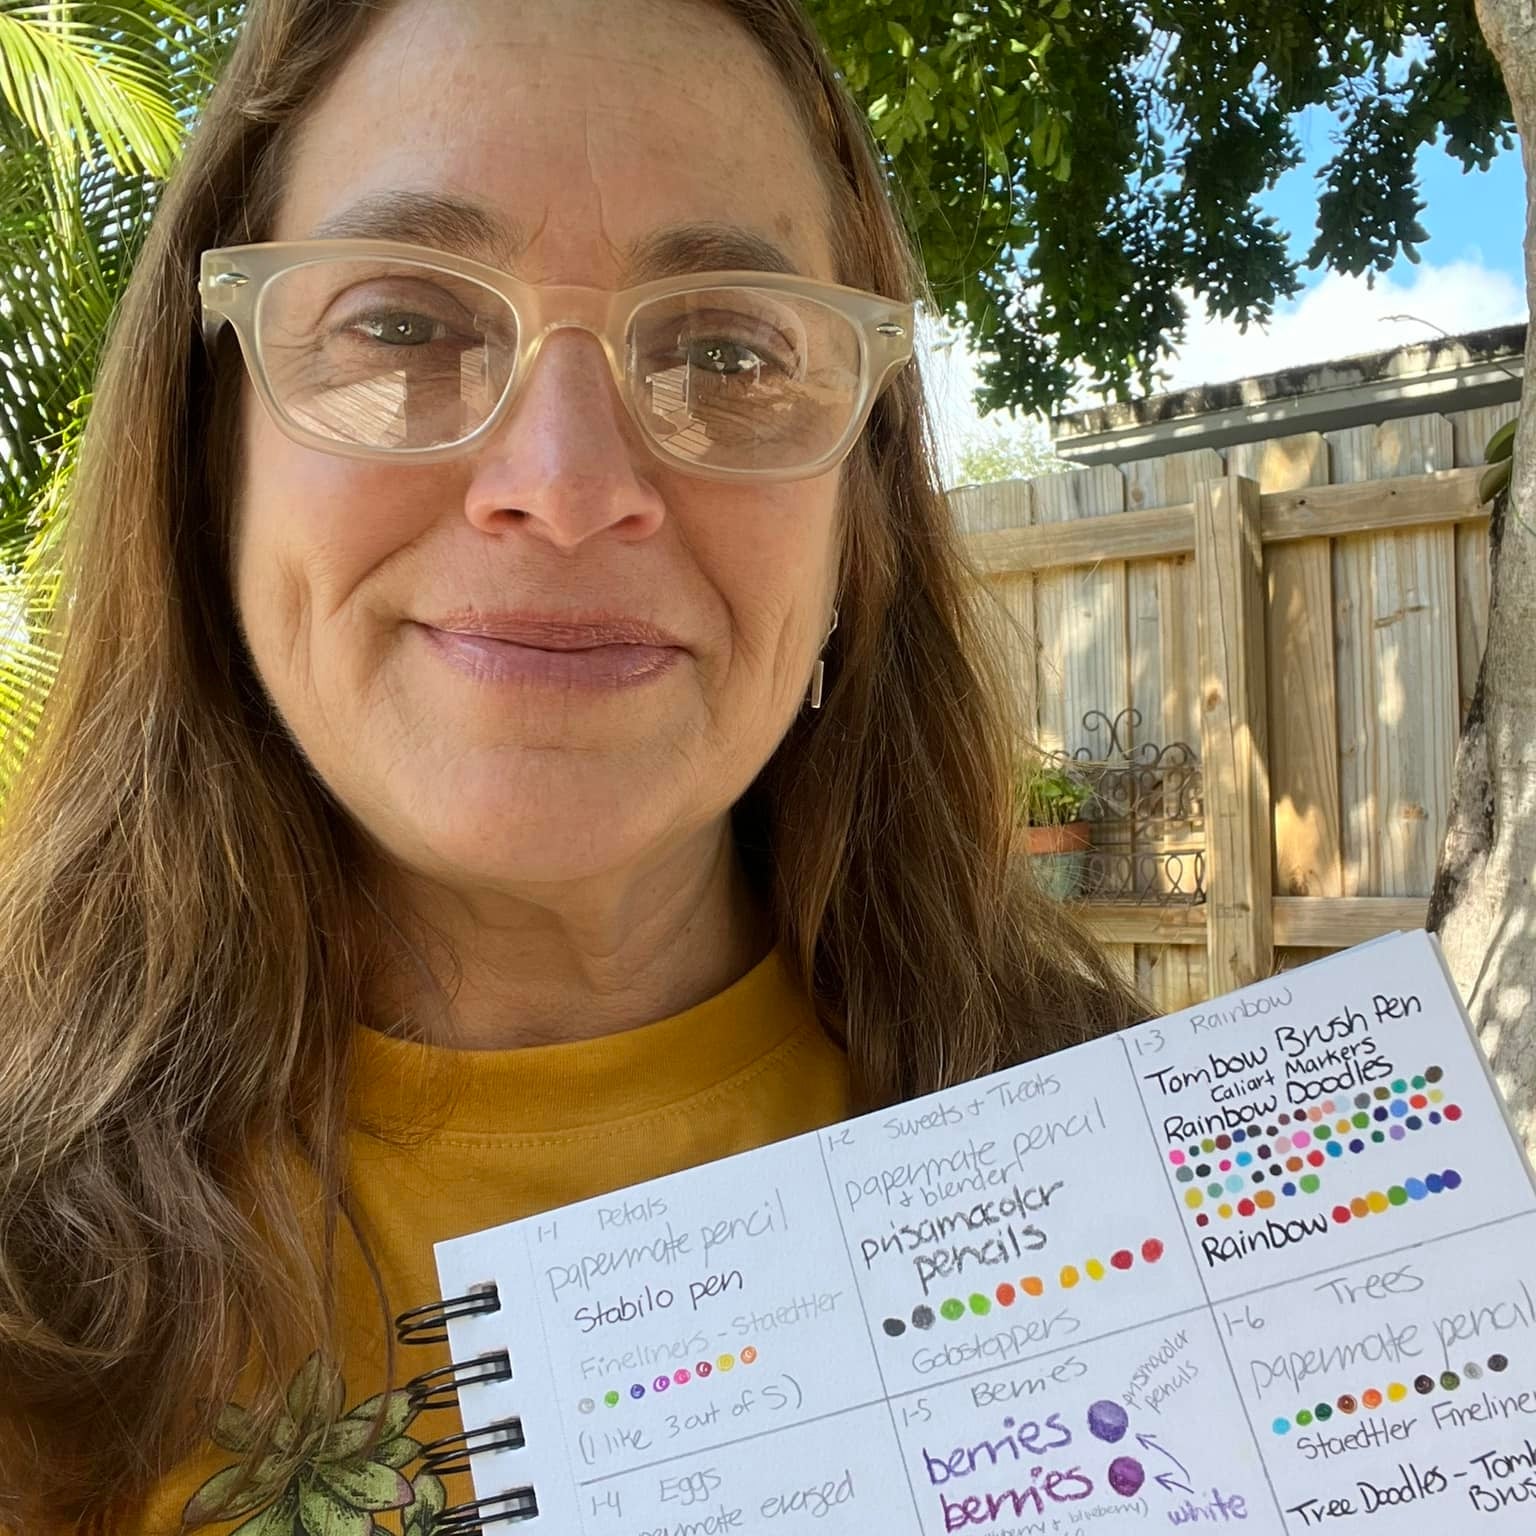 1-1 Petals
papermate pencil
Stabilo pen
Fineliners - Staedtler
(I like 3 out of 5)
1-2 Sweets + Treats
papermate pencil
+ blender
prisamacolor
pencils
Gobstoppers
1-3 Rainbow
Tombow Brush Pen
Caliart Markers
Rainbow Doodles
Rainbow
1-4 Eggs
erased
1-5 Berries
berries
berries
prismacolor
pencils
white
blueberry)
1-6 Trees
papermate pencil
Staedtler Fineline
Tree Doodles - Tom
Brus